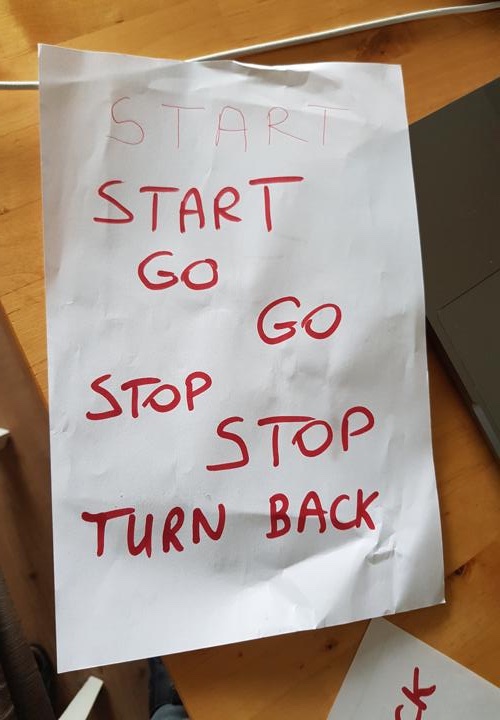 START
START
GO
GO
STOP
STOP
TURN BACK
CK